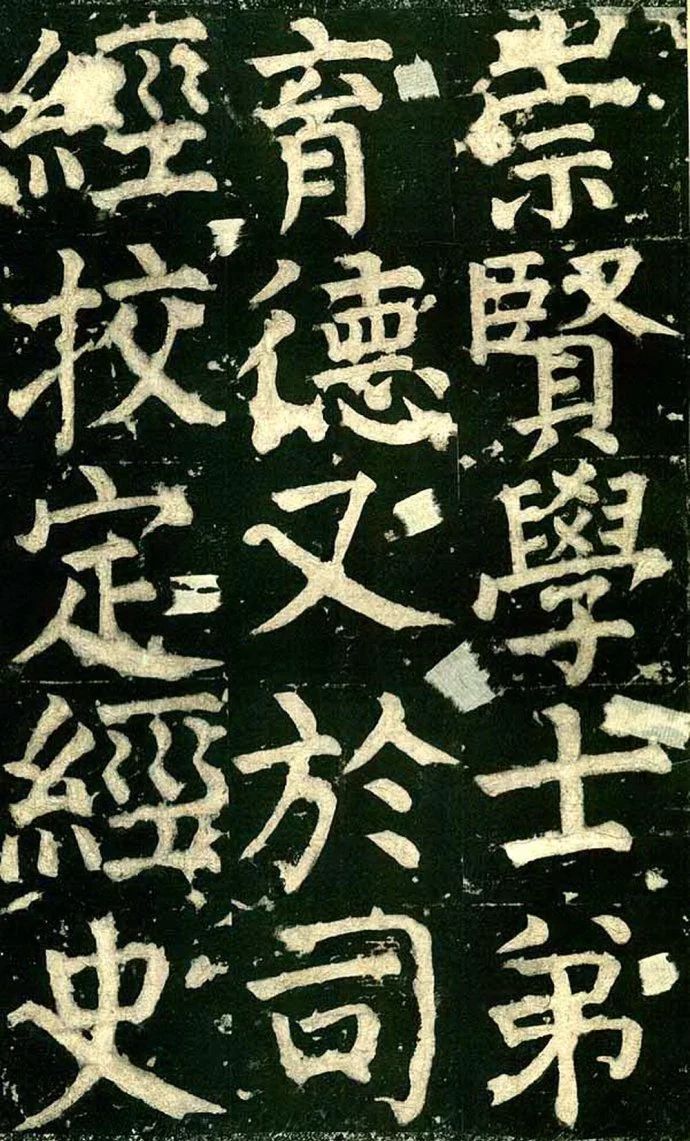 崇賢學士弟
育德又於司
經挍定經史